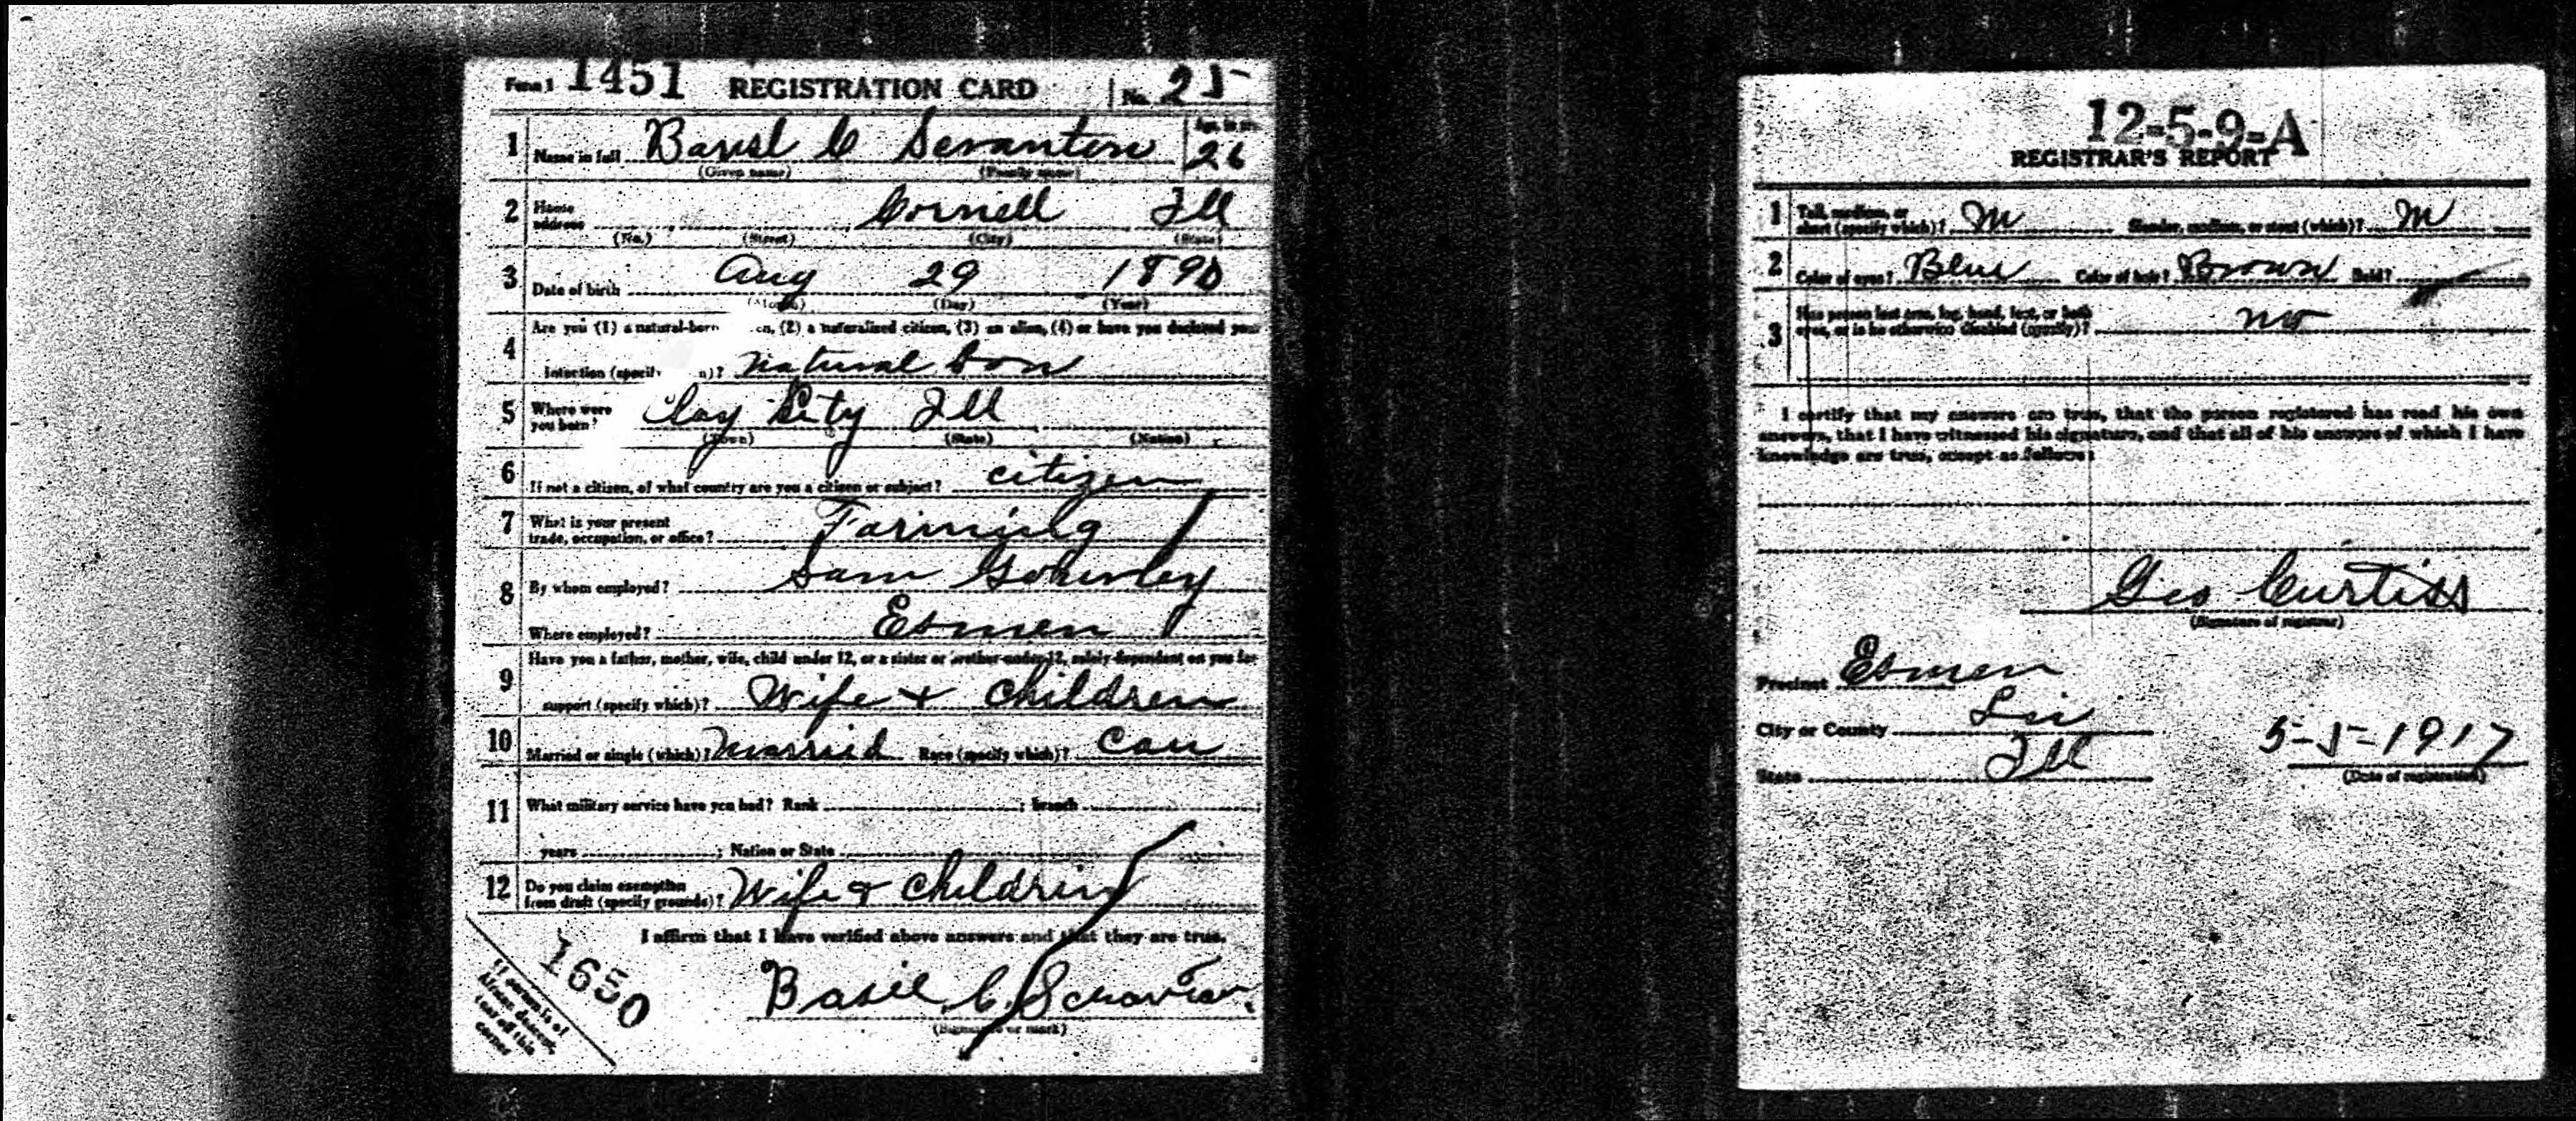 Form 1 1451 REGISTRATION CARD No. 25
1 Name in full Basil C Scranton Age, in yrs. 26
(Given name) (Family name)
2 Home address Cornell Ill
(No.) (Street) (City) (State)
3 Date of birth Aug 29 1890
(Month) (Day) (Year)
4 Are you (1) a natural-born en, (2) a naturalized citizen, (3) an alien, (4) or have you declared your
intention (specify n)? Natural born
5 Where were you born? Clay City Ill
(Town) (State) (Nation)
6 If not a citizen, of what country are you a citizen or subject? citizen
7 What is your present trade, occupation, or office? Farming
8 By whom employed? Sam
Where employed? Esmen
9 Have you a father, mother, wife, child under 12, or a sister or brother under 12, solely dependent on you for
support (specify which)? Wife + children
10 Married or single (which)? Married Race (specify which)? Cau
11 What military service have you had? Rank ; branch
years ; Nation or State
12 Do you claim exemption from draft (specify grounds)? Wife + children
I affirm that I have verified above answers and that they are true.
Basil C. Scranton.
(Signature or mark)
1650
If person is of
African descent,
tear off this
corner
12-5-9-A
REGISTRAR'S REPORT
1 Tall, medium, or short (specify which)? M Slender, medium, or stout (which)? M
2 Color of eyes? Blue Color of hair? Brown Bald?
3 Has person lost arm, leg, hand, foot, or both eyes, or is he otherwise disabled (specify)? no
I certify that my answers are true, that the person registered has read his own
answers, that I have witnessed his signature, and that all of his answers of which I have
knowledge are true, except as follows:
Geo Curtiss
(Signature of registrar)
Precinct Esmen
City or County Liv
State Ill
5-5-1917
(Date of registration)